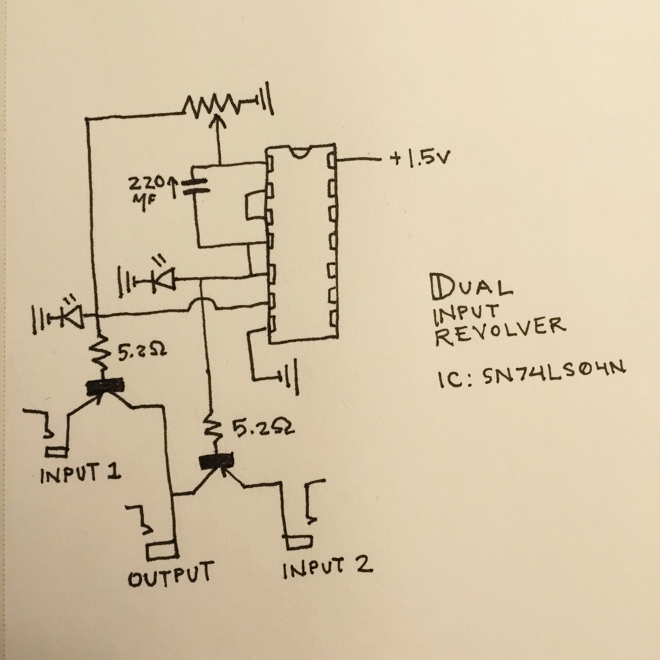 +1.5V
220
MF
DUAL
INPUT
REVOLVER
5.2Ω
IC: SN74LS04N
5.2Ω
INPUT 1
OUTPUT
INPUT 2